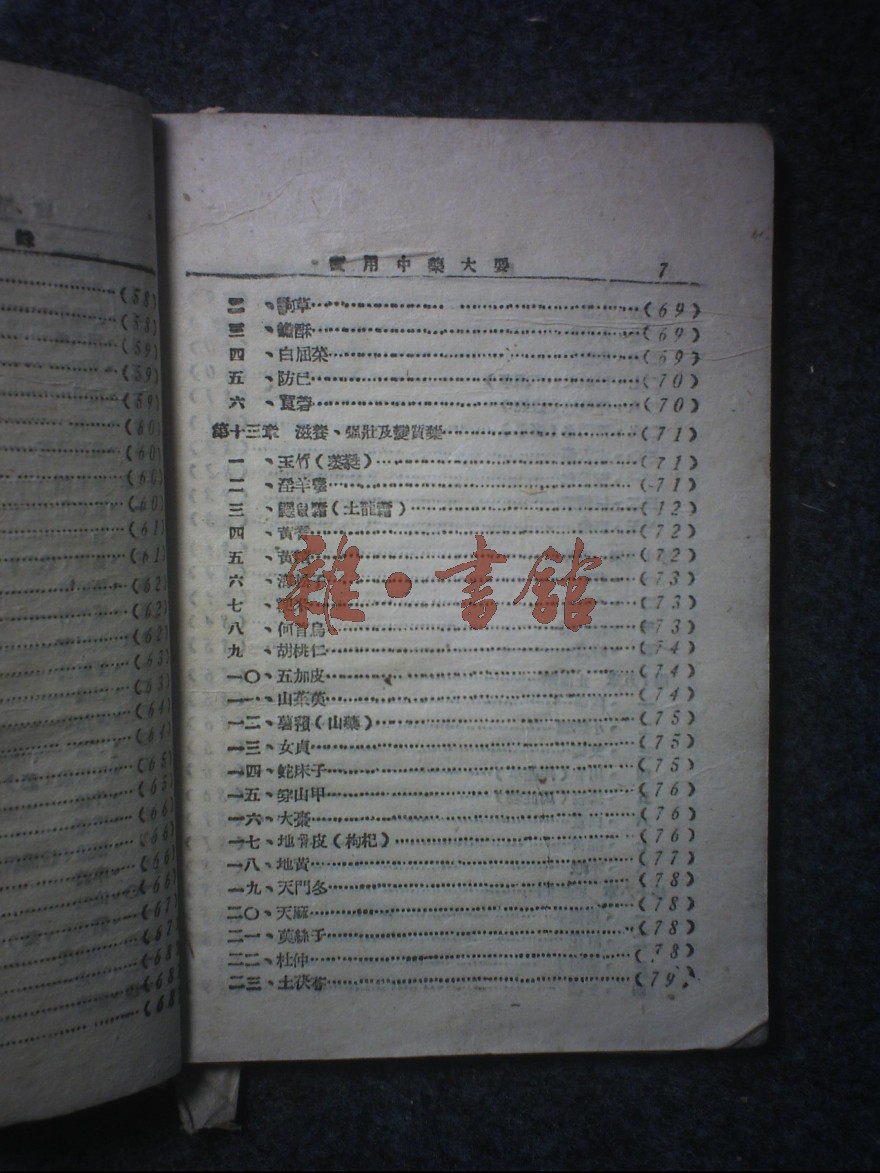 錄
(58)
(58)
(59)
(59)
(59)
(60)
(60)
(60)
(61)
(61)
(62)
(62)
(62)
(63)
(63)
(64)
(64)
(65)
(65)
(66)
(66)
(66)
(66)
(67)
(67)
(68)
(68)
(68)
實用中藥大要 7
二、 草 (69)
三、蟾酥 (69)
四、白屈菜 (69)
五、防已 (70)
六、莨菪 (70)
第十三章 滋養、强壯及變質藥 (71)
一、玉竹(萎蕤) (71)
二、淫羊藿 (71)
三、鼴鼠霜(土龍霜) (12)
四、黃耆 (72)
五、黃 (72)
六、 子 (73)
七、 (73)
八、何首烏 (73)
九、胡桃仁 (74)
一〇、五加皮 (74)
一一、山茱萸 (74)
一二、薯蕷(山藥) (75)
一三、女貞 (75)
一四、蛇床子 (75)
一五、穿山甲 (76)
一六、大棗 (76)
一七、地骨皮(枸杞) (76)
一八、地黃 (77)
一九、天門冬 (78)
二〇、天麻 (78)
二一、菟絲子 (78)
二二、杜仲 (78)
二三、土茯苓 (79)
雜·書館